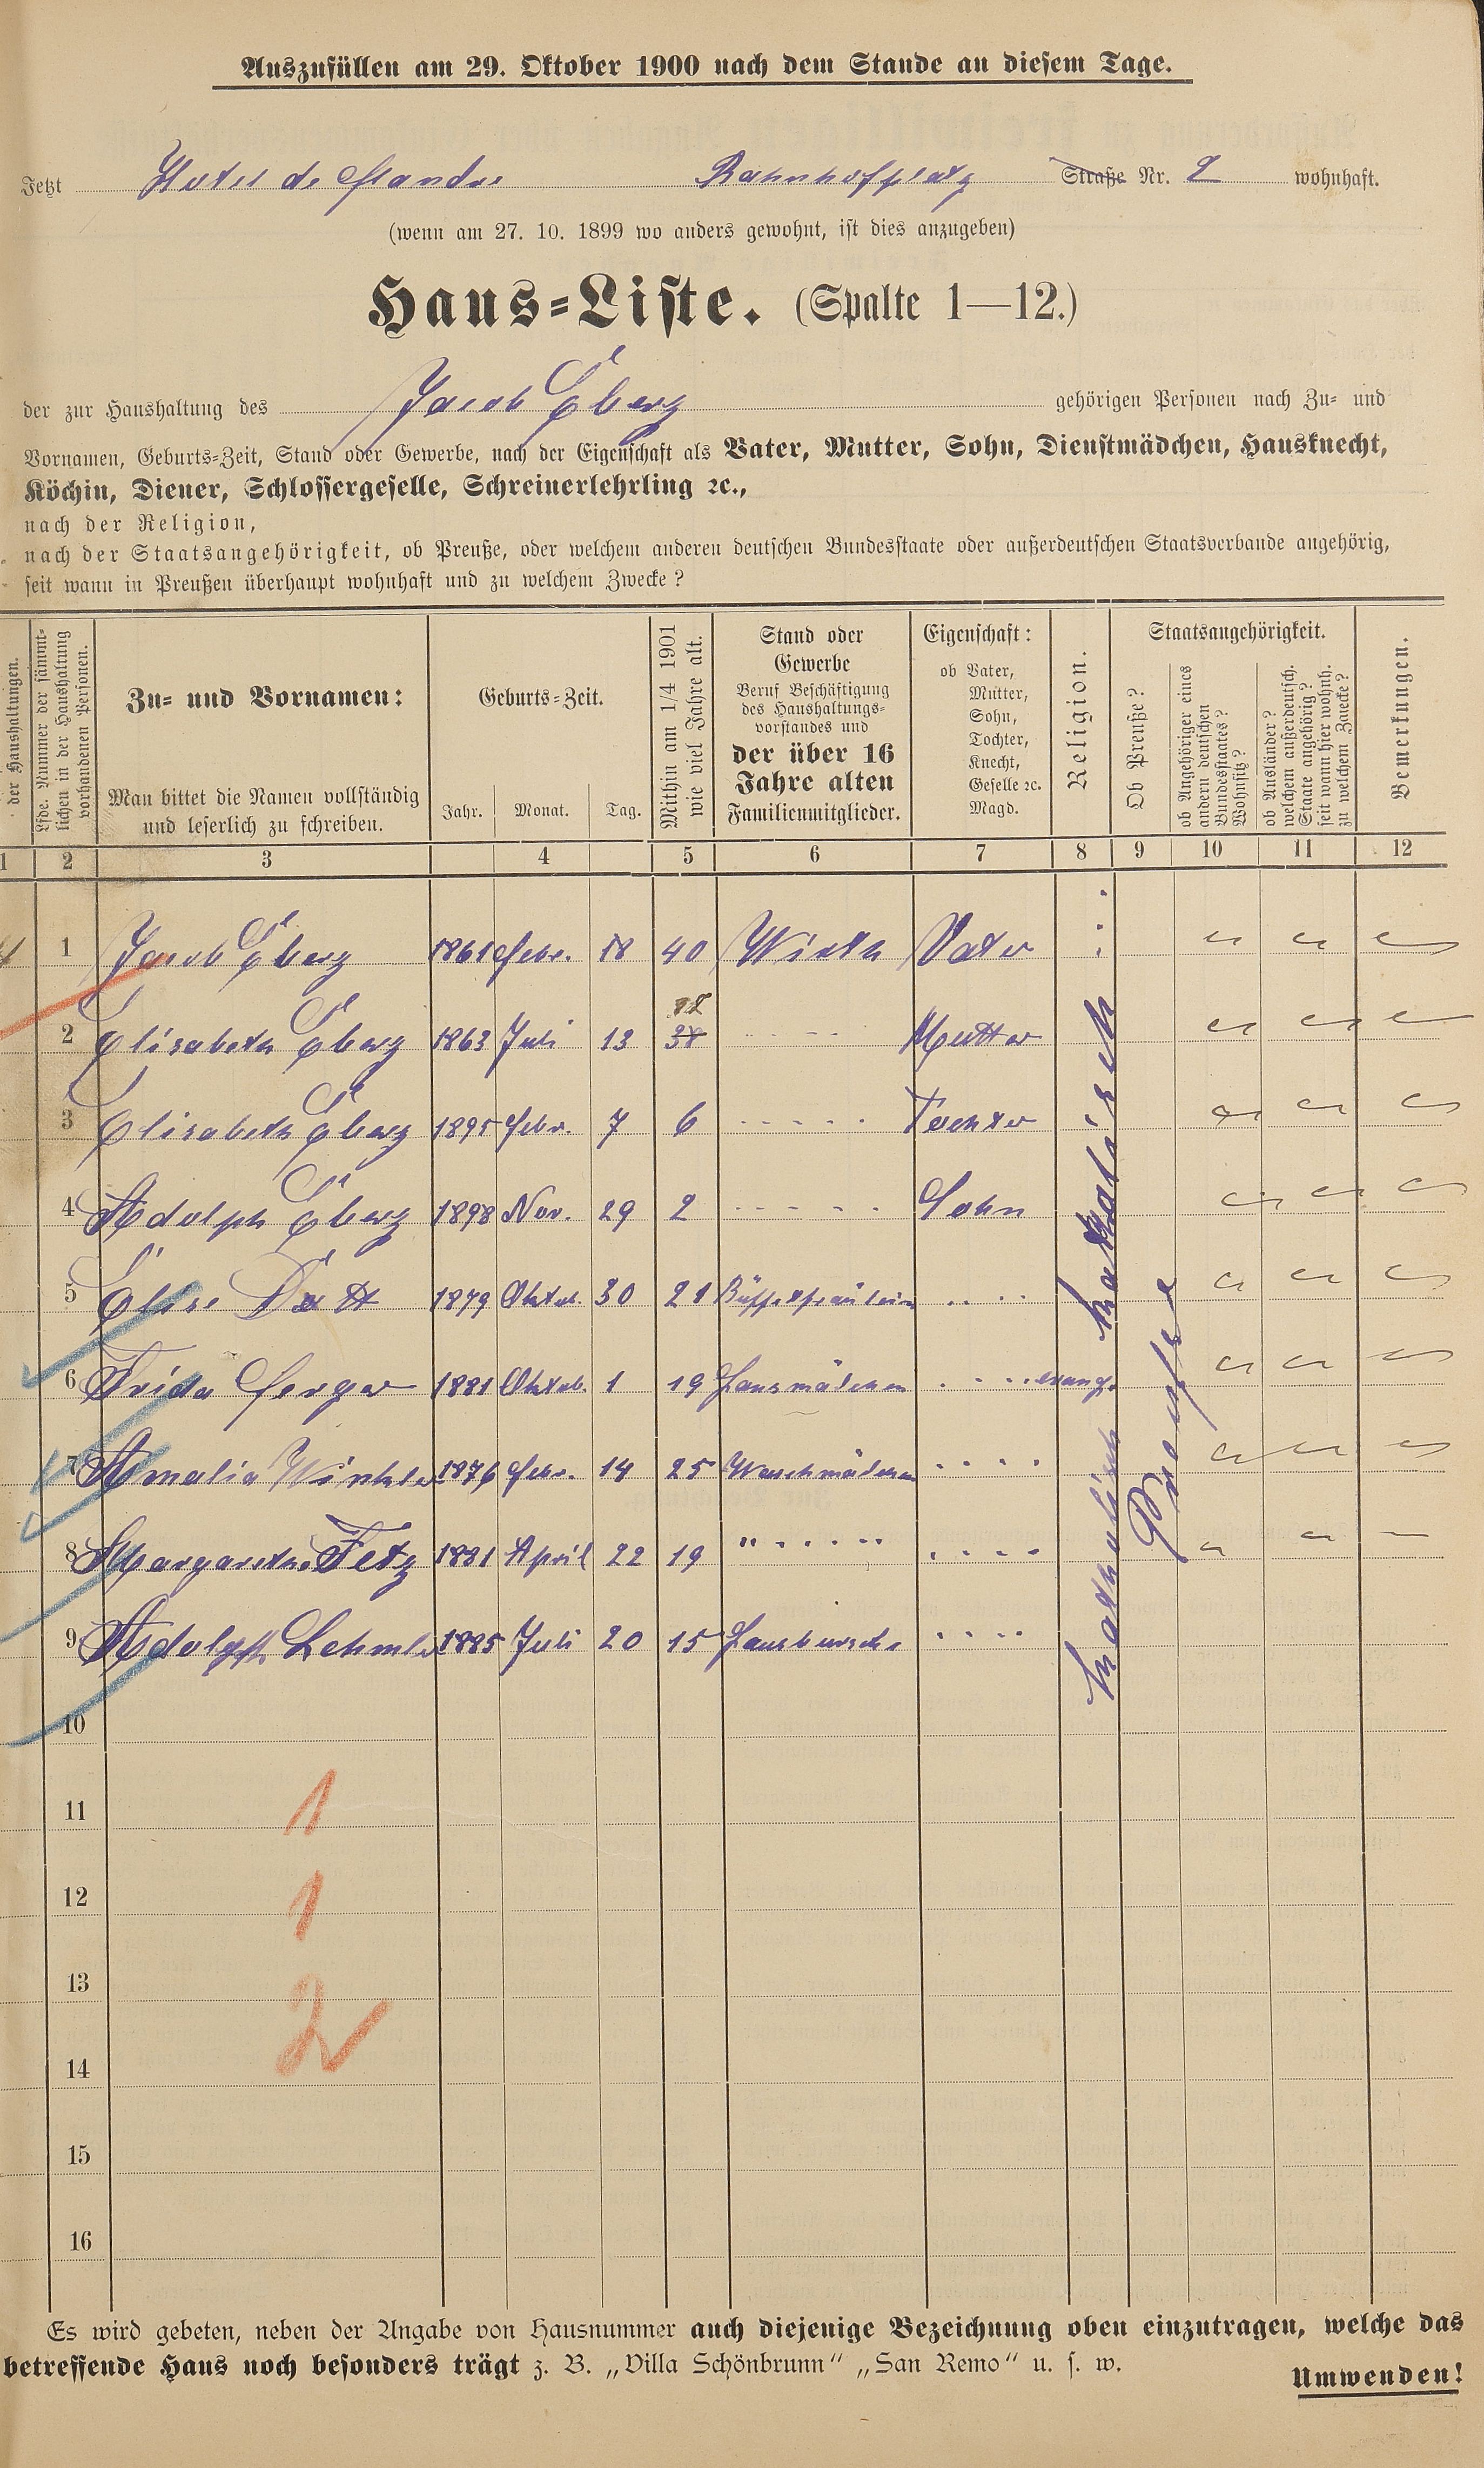 Auszufüllen am 29. Oktober 1900 nach dem Stande an diesem Tage.
Jetzt Hotel de Flandre Bahnhofplatz Straße Nr. 2 wohnhaft.
(wenn am 27. 10. 1899 wo anders gewohnt, ist dies anzugeben)
Haus-Liste. (Spalte 1—12.)
der zur Haushaltung des Jacob Eberz gehörigen Personen nach Zu- und
Vornamen, Geburts-Zeit, Stand oder Gewerbe, nach der Eigenschaft als Vater, Mutter, Sohn, Dienstmädchen, Hausknecht,
Köchin, Diener, Schlossergeselle, Schreinerlehrling ꝛc.,
nach der Religion,
nach der Staatsangehörigkeit, ob Preuße, oder welchem anderen deutschen Bundesstaate oder außerdeutschen Staatsverbande angehörig,
seit wann in Preußen überhaupt wohnhaft und zu welchem Zwecke?
der Haushaltungen.
Lfde. Nummer der sämmt-
lichen in der Haushaltung
vorhandenen Personen.
Zu- und Vornamen:
Man bittet die Namen vollständig
und leserlich zu schreiben.
Geburts-Zeit.
Jahr. Monat. Tag.
Mithin am 1/4 1901
wie viel Jahre alt.
Stand oder
Gewerbe
Beruf Beschäftigung
des Haushaltungs-
vorstandes und
der über 16
Jahre alten
Familienmitglieder.
Eigenschaft:
ob Vater,
Mutter,
Sohn,
Tochter,
Knecht,
Geselle ꝛc.
Magd.
Religion.
Staatsangehörigkeit.
Ob Preuße?
ob Angehöriger eines
andern deutschen
Bundesstaates?
Wohnsitz?
ob Ausländer?
welchem außerdeutsch.
Staate angehörig?
seit wann hier wohnh.
zu welchem Zwecke?
Bemerkungen.
1 2 3 4 5 6 7 8 9 10 11 12
1 Jacob Eberz 1861 Febr. 18 40 Wirth Vater
2 Elisabeth Eberz 1863 Juli 13 38 Mutter
3 Elisabeth Eberz 1895 Febr. 7 6 Tochter
4 Adolph Eberz 1898 Nov. 29 2 Sohn
katholisch
5 Elise 1879 Oktob. 30 21 Büffetfräulein
6 Frida Gerger 1881 Oktob. 1 19 Hausmädchen evang.
7 Amalia Winkler 1876 Febr. 14 25 Waschmädchen
8 Margarethe Fetz 1881 April 22 19 "
9 Adolph Lehmler 1885 Juli 20 15 Hausbursche
katholisch
Preusse
10
11 1
12 1
13 2
14
15
16
Es wird gebeten, neben der Angabe von Hausnummer auch diejenige Bezeichnung oben einzutragen, welche das
betreffende Haus noch besonders trägt z. B. „Villa Schönbrunn" „San Remo" u. s. w.
Umwenden!